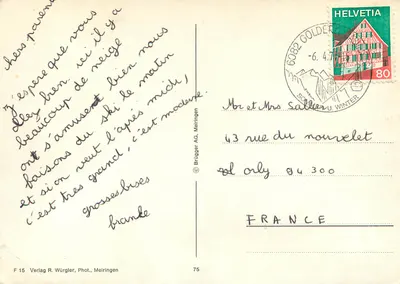 chers parents
J'espère que vous
allez bien ici il y a
beaucoup de neige
on s'amusent bien nous
faisons du ski le matin
et si on veut l'après midi,
c'est très grand, c'est moderne.
grosses bises
© Brügger AG, Meiringen
F 15 Verlag R. Würgler, Phot., Meiringen
75
HELVETIA
80
6082 GOLDERN
-6. 4. 7
WINTER
Mr et Mrs
43 rue du nouvelet
orly 94 300
FRANCE